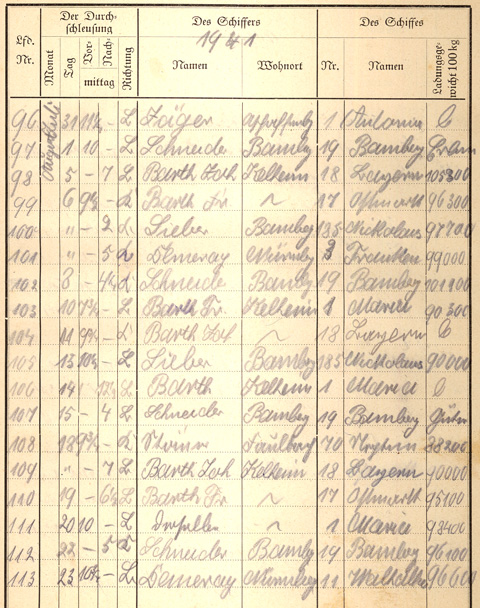 Der Durch- Des Schiffers Des Schiffes
schleusung 1941
Lfd. Nr. Monat Tag Vor- Nach- mittag Richtung Namen Wohnort Nr. Namen Ladungsge- wicht 100 kg
96 31 L Jäger 1 Antonia
97 1 10 - L Schneider Bamberg 19 Bamberg
98 5 - 7 L Barth Joh Kelheim 18 Bayern 105300
99 6 9½ - L Barth Fr. 17 Ostmark 96300
100 " - 2 L Lieber Bamberg 185 Nikolaus 97700
101 " - 5 L Demeray Nürnbg Franken 99000
102 8 - 4½ L Schneider Bamberg 19 Bamberg 101100
103 10 7½ - L Barth Fr. Kelheim 1 Maria 90300
104 11 9½ - L Barth Joh 18 Bayern
105 13 10½ - L Lieber Bamberg 185 Nikolaus 90000
106 14 L Barth Kelheim 1 Maria
107 15 - 4 L Schneider Bamberg 19 Bamberg Güter
108 18 9½ - L 70 38200
109 " - 7 L Barth Joh Kelheim 18 Bayern
110 19 - 6½ L Barth Fr 17 Ostmark 95100
111 20 10 - L derselbe 1 Maria 93400
112 22 - 5 L Schneider Bamberg 19 Bamberg 96100
113 23 10½ - L Demeray Nürnberg 11 Walhalla 96600